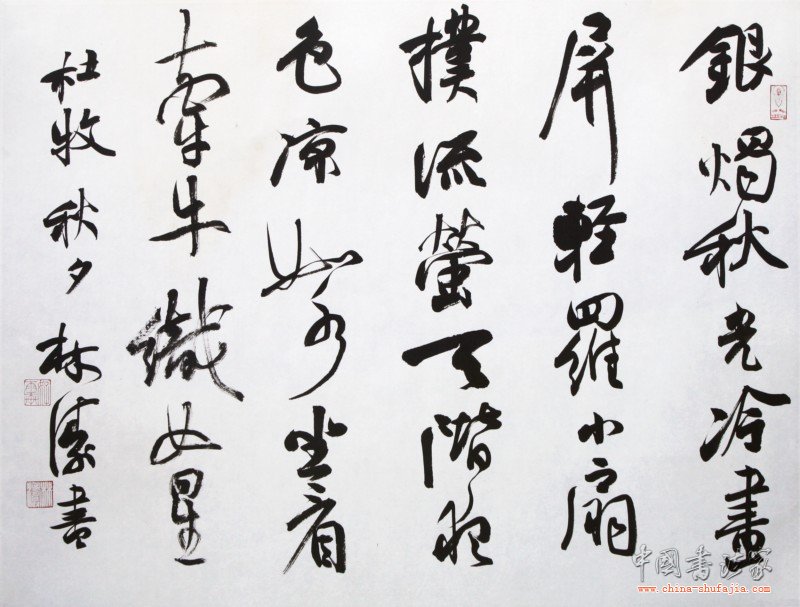 銀燭秋光冷畫
屏軽羅小扇
撲流螢天階夜
色凉如水坐看
牽牛織女星
杜牧秋夕 林 書
中國书法家
www.china-shufajia.com